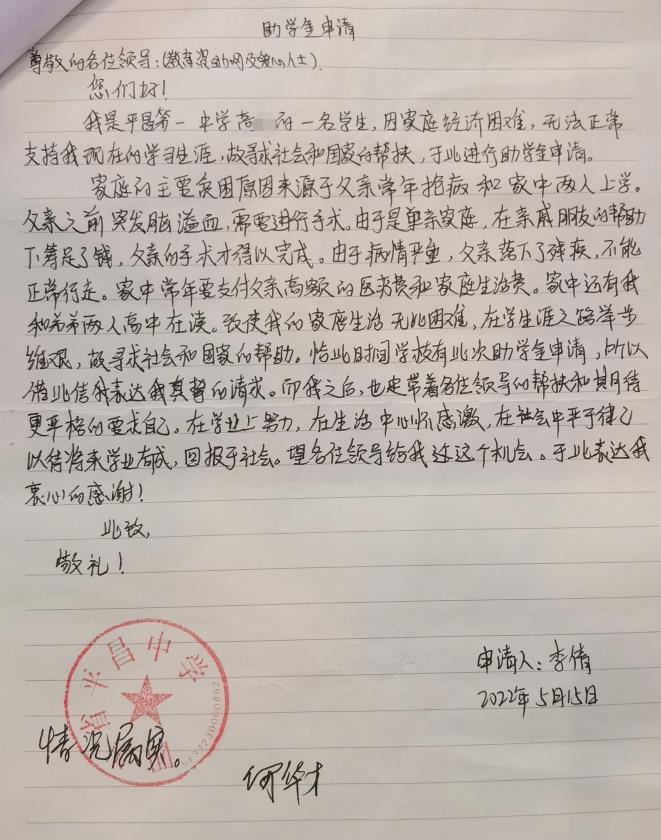 助学金申请
尊敬的各位领导:(教育资助网及爱心人士).
您们好!
我是平昌第一中学高 的一名学生,因家庭经济困难,无法正常
支持我现在的学习生涯,故寻求社会和国家的帮扶,于此进行助学金申请。
家庭的主要贫困原因来源于父亲常年抱病和家中两人上学。
父亲之前突发脑溢血,需要进行手术。由于是单亲家庭,在亲戚朋友的帮助
下筹足了钱,父亲的手术才得以完成。由于病情严重,父亲落下了残疾,不能
正常行走。家中常年要支付父亲高额的医药费和家庭生活费。家中还有我
和弟弟两人高中在读。致使我的家庭生活无比困难,在学生涯之路举步
维艰,故寻求社会和国家的帮助。恰此时间学校有此次助学金申请,所以
借此信我表达我真挚的请求。而我之后,也定带着各位领导的帮扶和其期待
更严格的要求自己。在学业上努力,在生活中心怀感激,在社会中严于律己
以待将来学业有成,回报于社会。望各位领导给我这个机会。于此表达我
衷心的感谢!
此致,
敬礼!
申请人:李倩
2022年5月15日
平昌中学
情况属实。
何华才